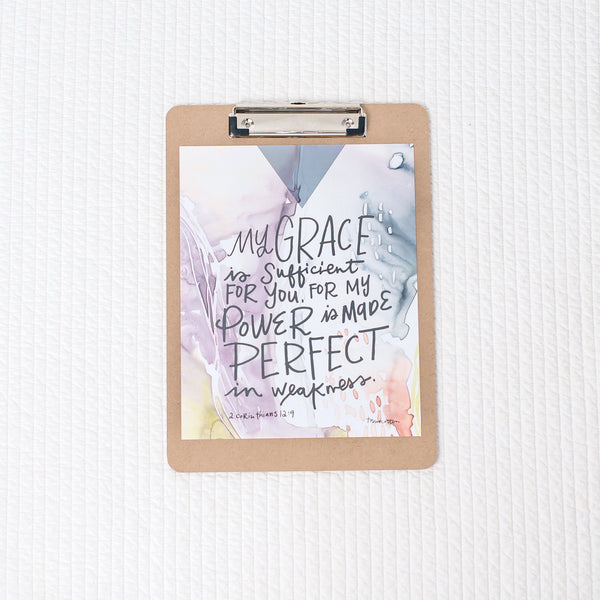 My GRACE
is Sufficient
FOR YOU, FOR MY
POWER is MADE
PERFECT
in weakness.
2 corinthians 12:9